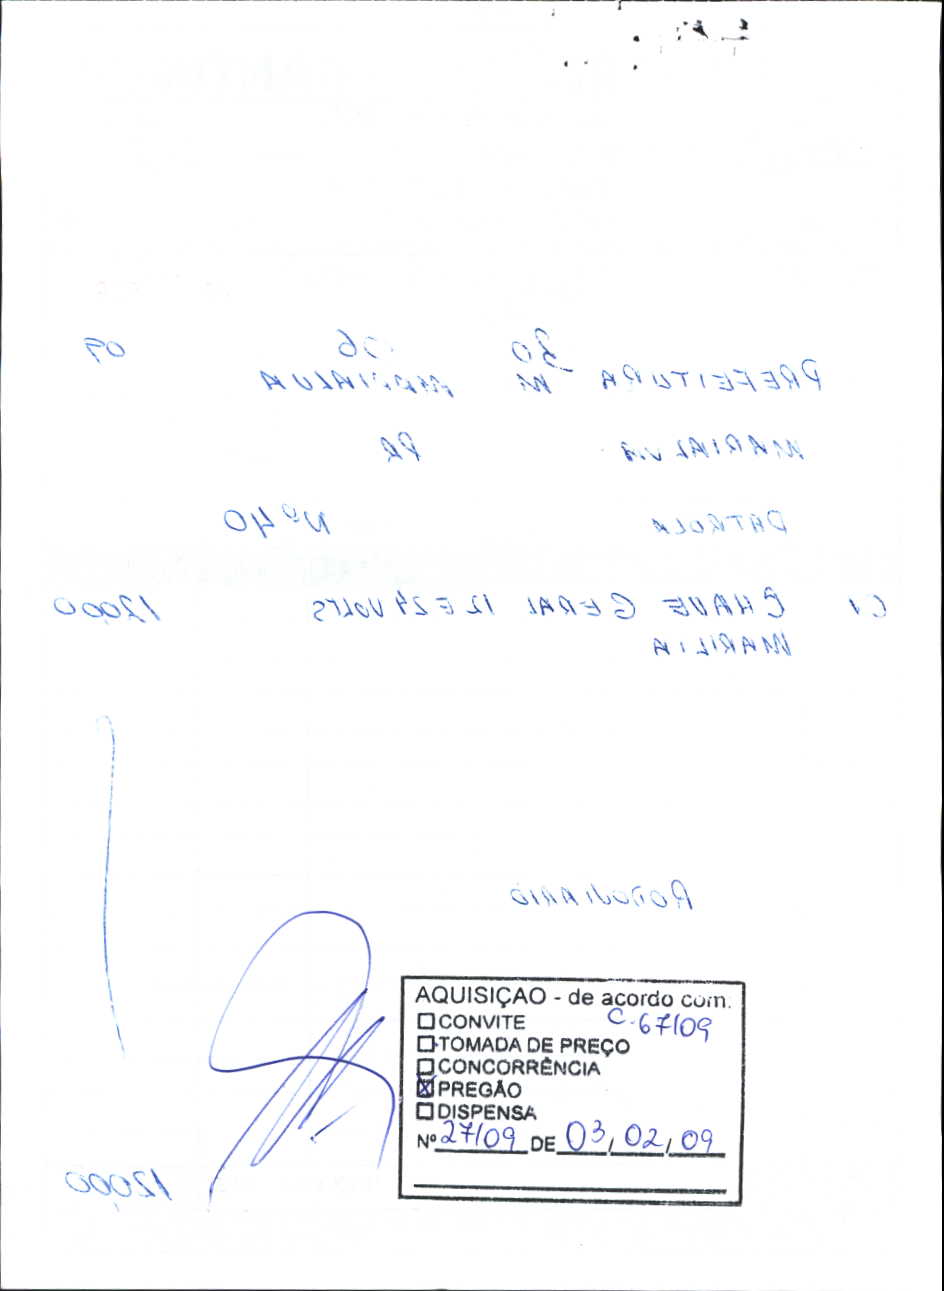 30 06 09
PREFEITURA M MARIALVA
MARIALVA PR
PATROLA Nº 40
01 CHAVE GERAL 12 E 24 VOLTS 120,00
MARILIA
RODOVIARIO
AQUISIÇAO - de acordo com:
C. 67/09
CONVITE
TOMADA DE PREÇO
CONCORRÊNCIA
PREGÃO
DISPENSA
Nº 27/09 DE 03, 02, 09
120,00